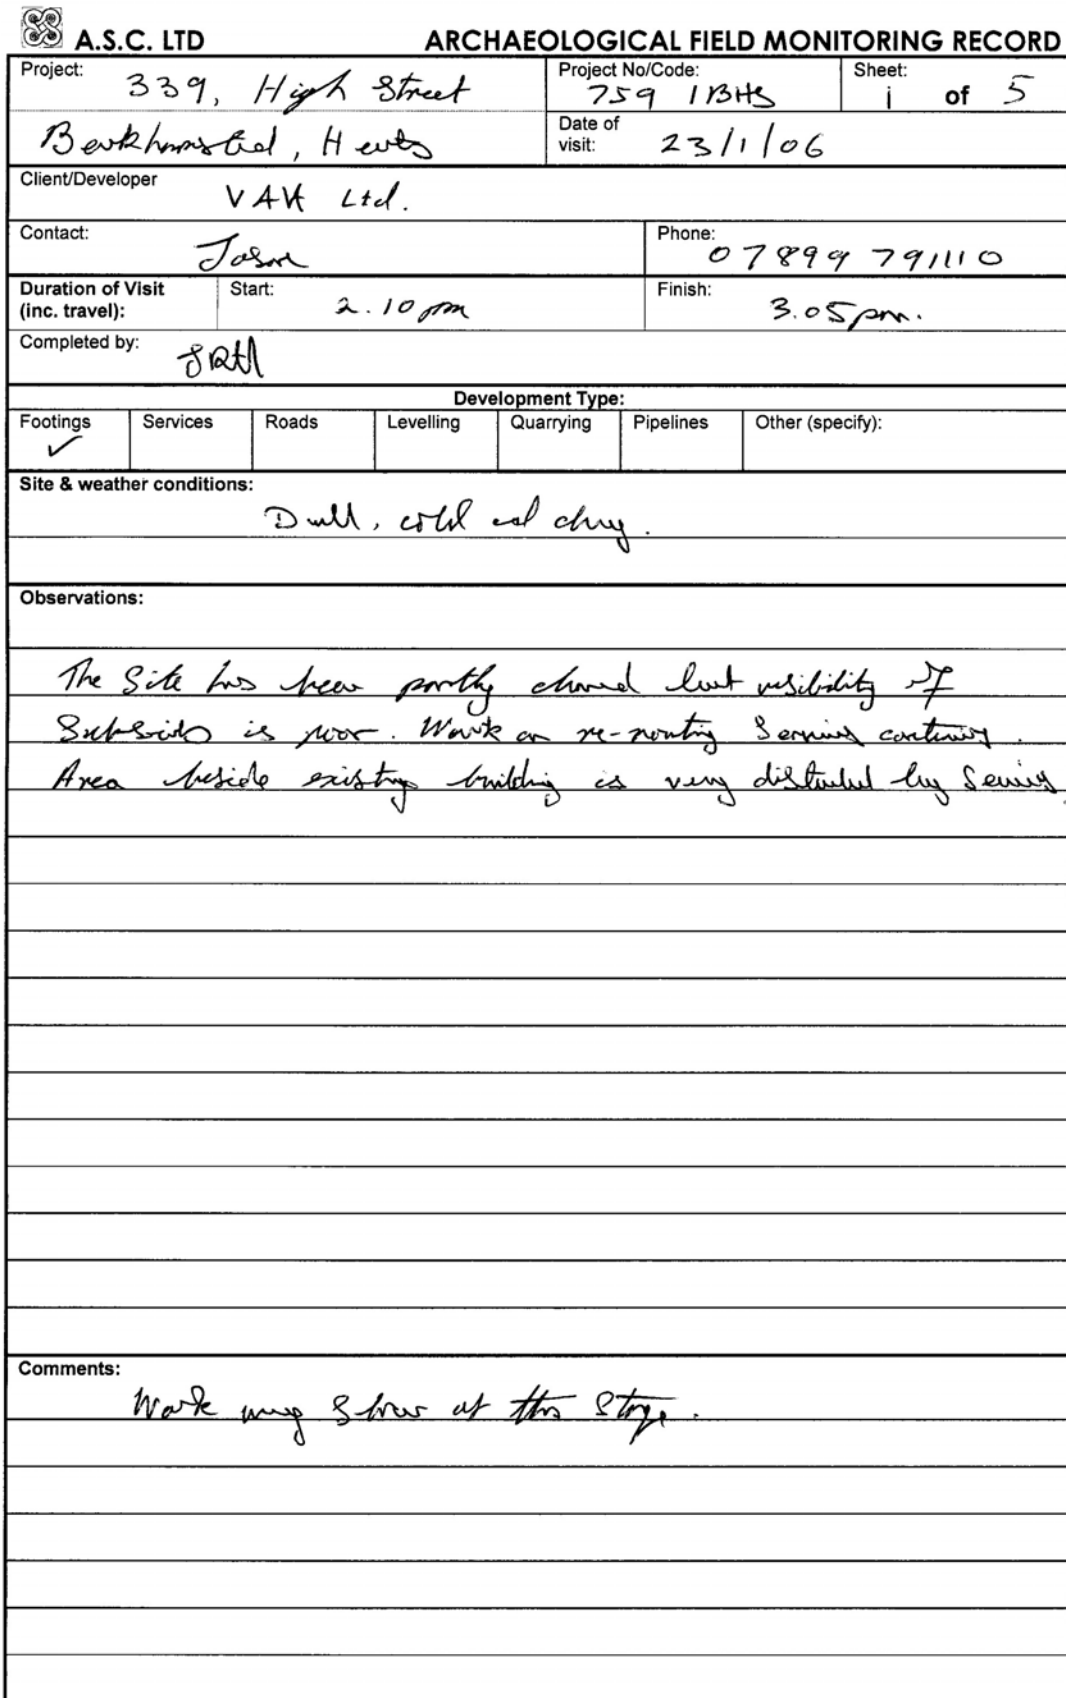 A.S.C. LTD ARCHAEOLOGICAL FIELD MONITORING RECORD
Project: 339, High Street
Project No/Code: 759 / BHS
Sheet: 1 of 5
Berkhamsted, Herts
Date of visit: 23/1/06
Client/Developer Ltd.
Contact: Jason
Phone: 07899 791110
Duration of Visit (inc. travel):
Start: 2.10 pm
Finish: 3.05 pm.
Completed by:
Development Type:
Footings ✓ Services Roads Levelling Quarrying Pipelines Other (specify):
Site & weather conditions:
Dull, cold and dry.
Observations:
The Site has been partly cleared but visibility of
Subsoils is poor. Work on re-routing Services continues.
Area beside existing building is very disturbed by Services
Comments:
Work very slow at this Stage.